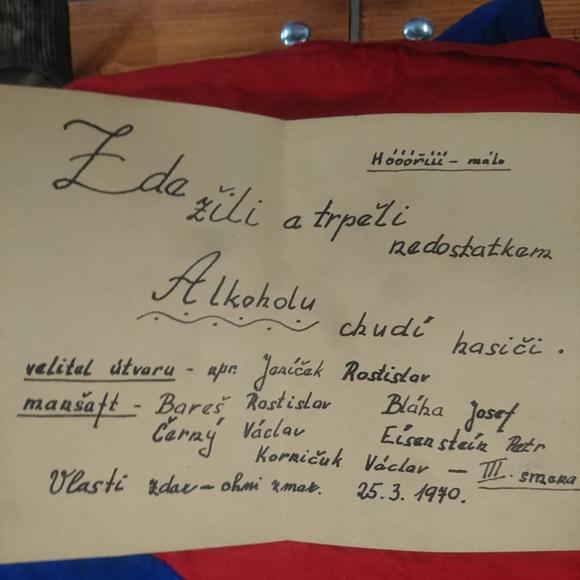 Hóóóřííí - málo
Zde
žili a trpěli
nedostatkem
Alkoholu
chudí hasiči.
velitel útvaru - npr. Janíček Rostislav
manšaft - Bareš Rostislav Bláha Josef
Černý Václav Eisenstein Petr
Korničuk Václav - III. směna
Vlasti zdar - ohni zmar. 25.3. 1970.